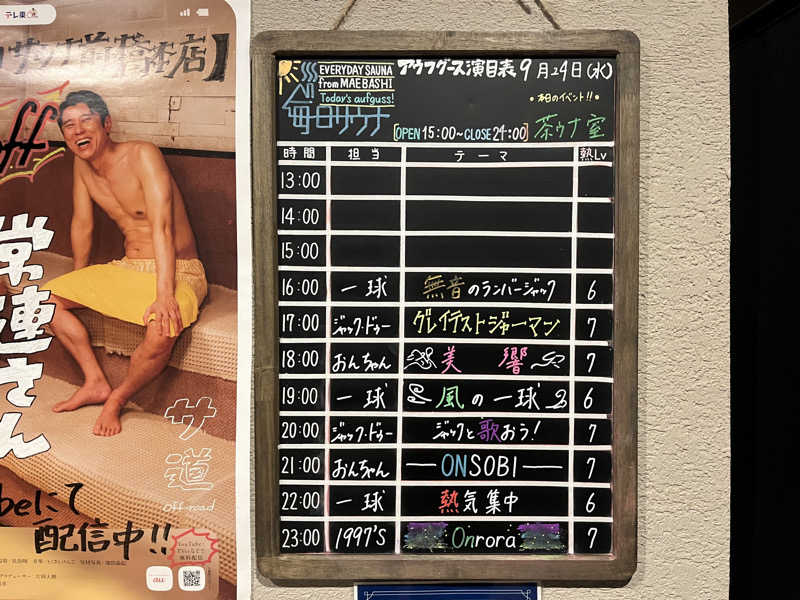 テレ東
サウナ前橋本店】
常連さん
サ道
Off-road
beにて
配信中!!
YouTube
au
EVERYDAY SAUNA
from MAEBASHI
Today's aufguss!
毎日サウナ
アウフグース演目表 9月24日(水)
・本日のイベント!!・
[OPEN 15:00~CLOSE 24:00] 茶ウナ室
時間 担当 テーマ 熱Lv
13:00
14:00
15:00
16:00 一球 無音のランバージャック 6
17:00 ジャック・ドゥー グレイテストジャーマン 7
18:00 おんちゃん 美響 7
19:00 一球 風の一球 6
20:00 ジャック・ドゥー ジャックと歌おう! 7
21:00 おんちゃん ―ONSOBI― 7
22:00 一球 熱気集中 6
23:00 1997'S Onrora 7